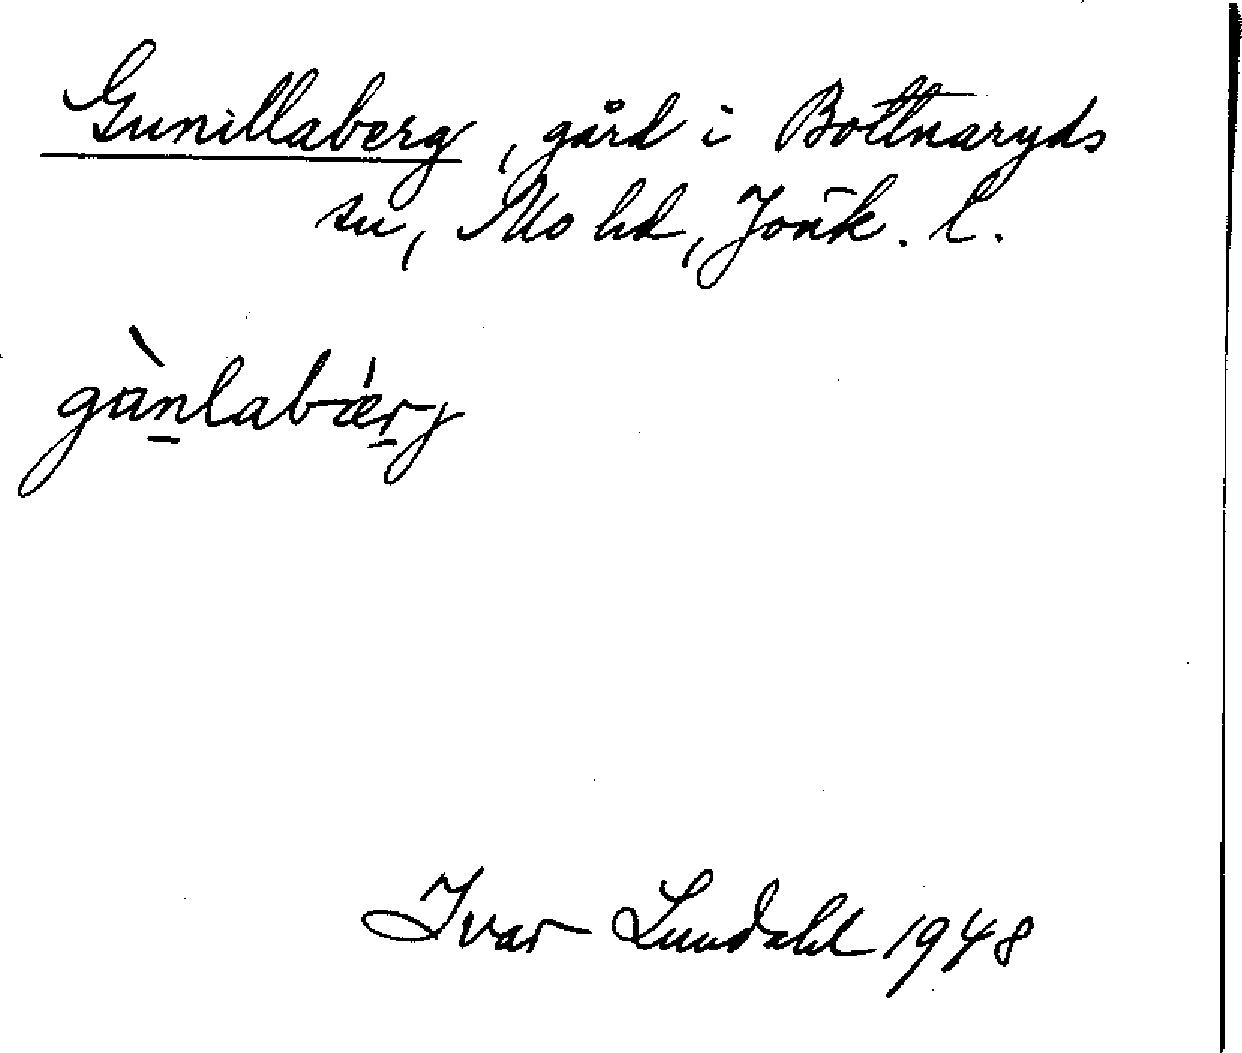 Gunillaberg, gård i Bottnaryds
sn, Mo hd, Jönk. l.
gànlabǽrj
Ivar Lundahl 1948